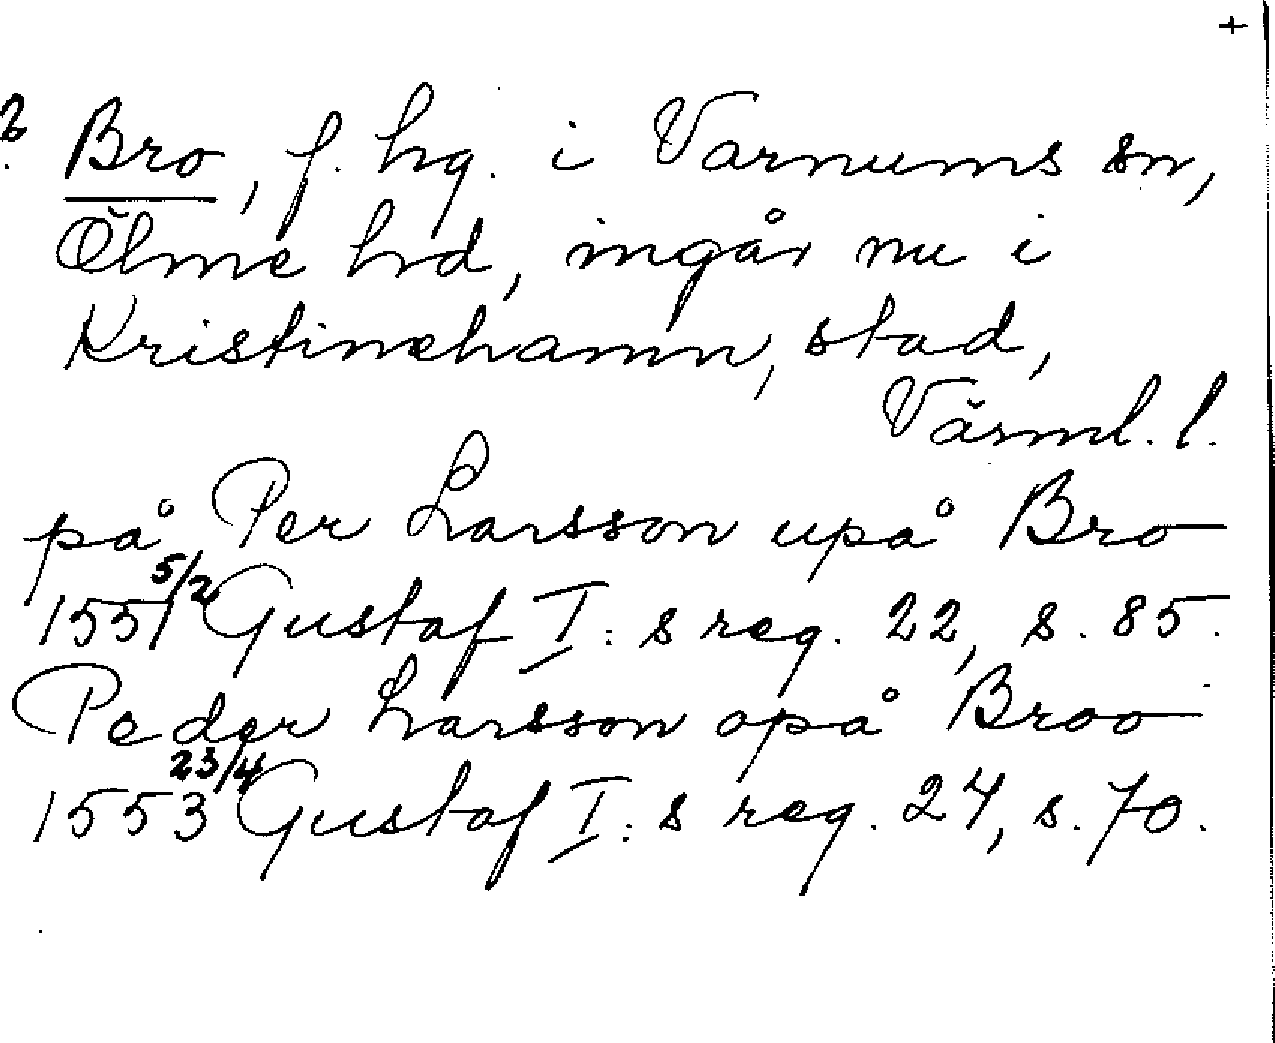 +
Bro, f. hg. i Varnums sn,
Ölme hd, ingår nu i
Kristinehamn, stad,
Värml. l.
på Per Larsson upå Bro
1551 5/2 Gustaf I:s reg. 22, s. 85.
Peder Larsson opå Broo
1553 23/4 Gustaf I:s reg. 24, s. 70.